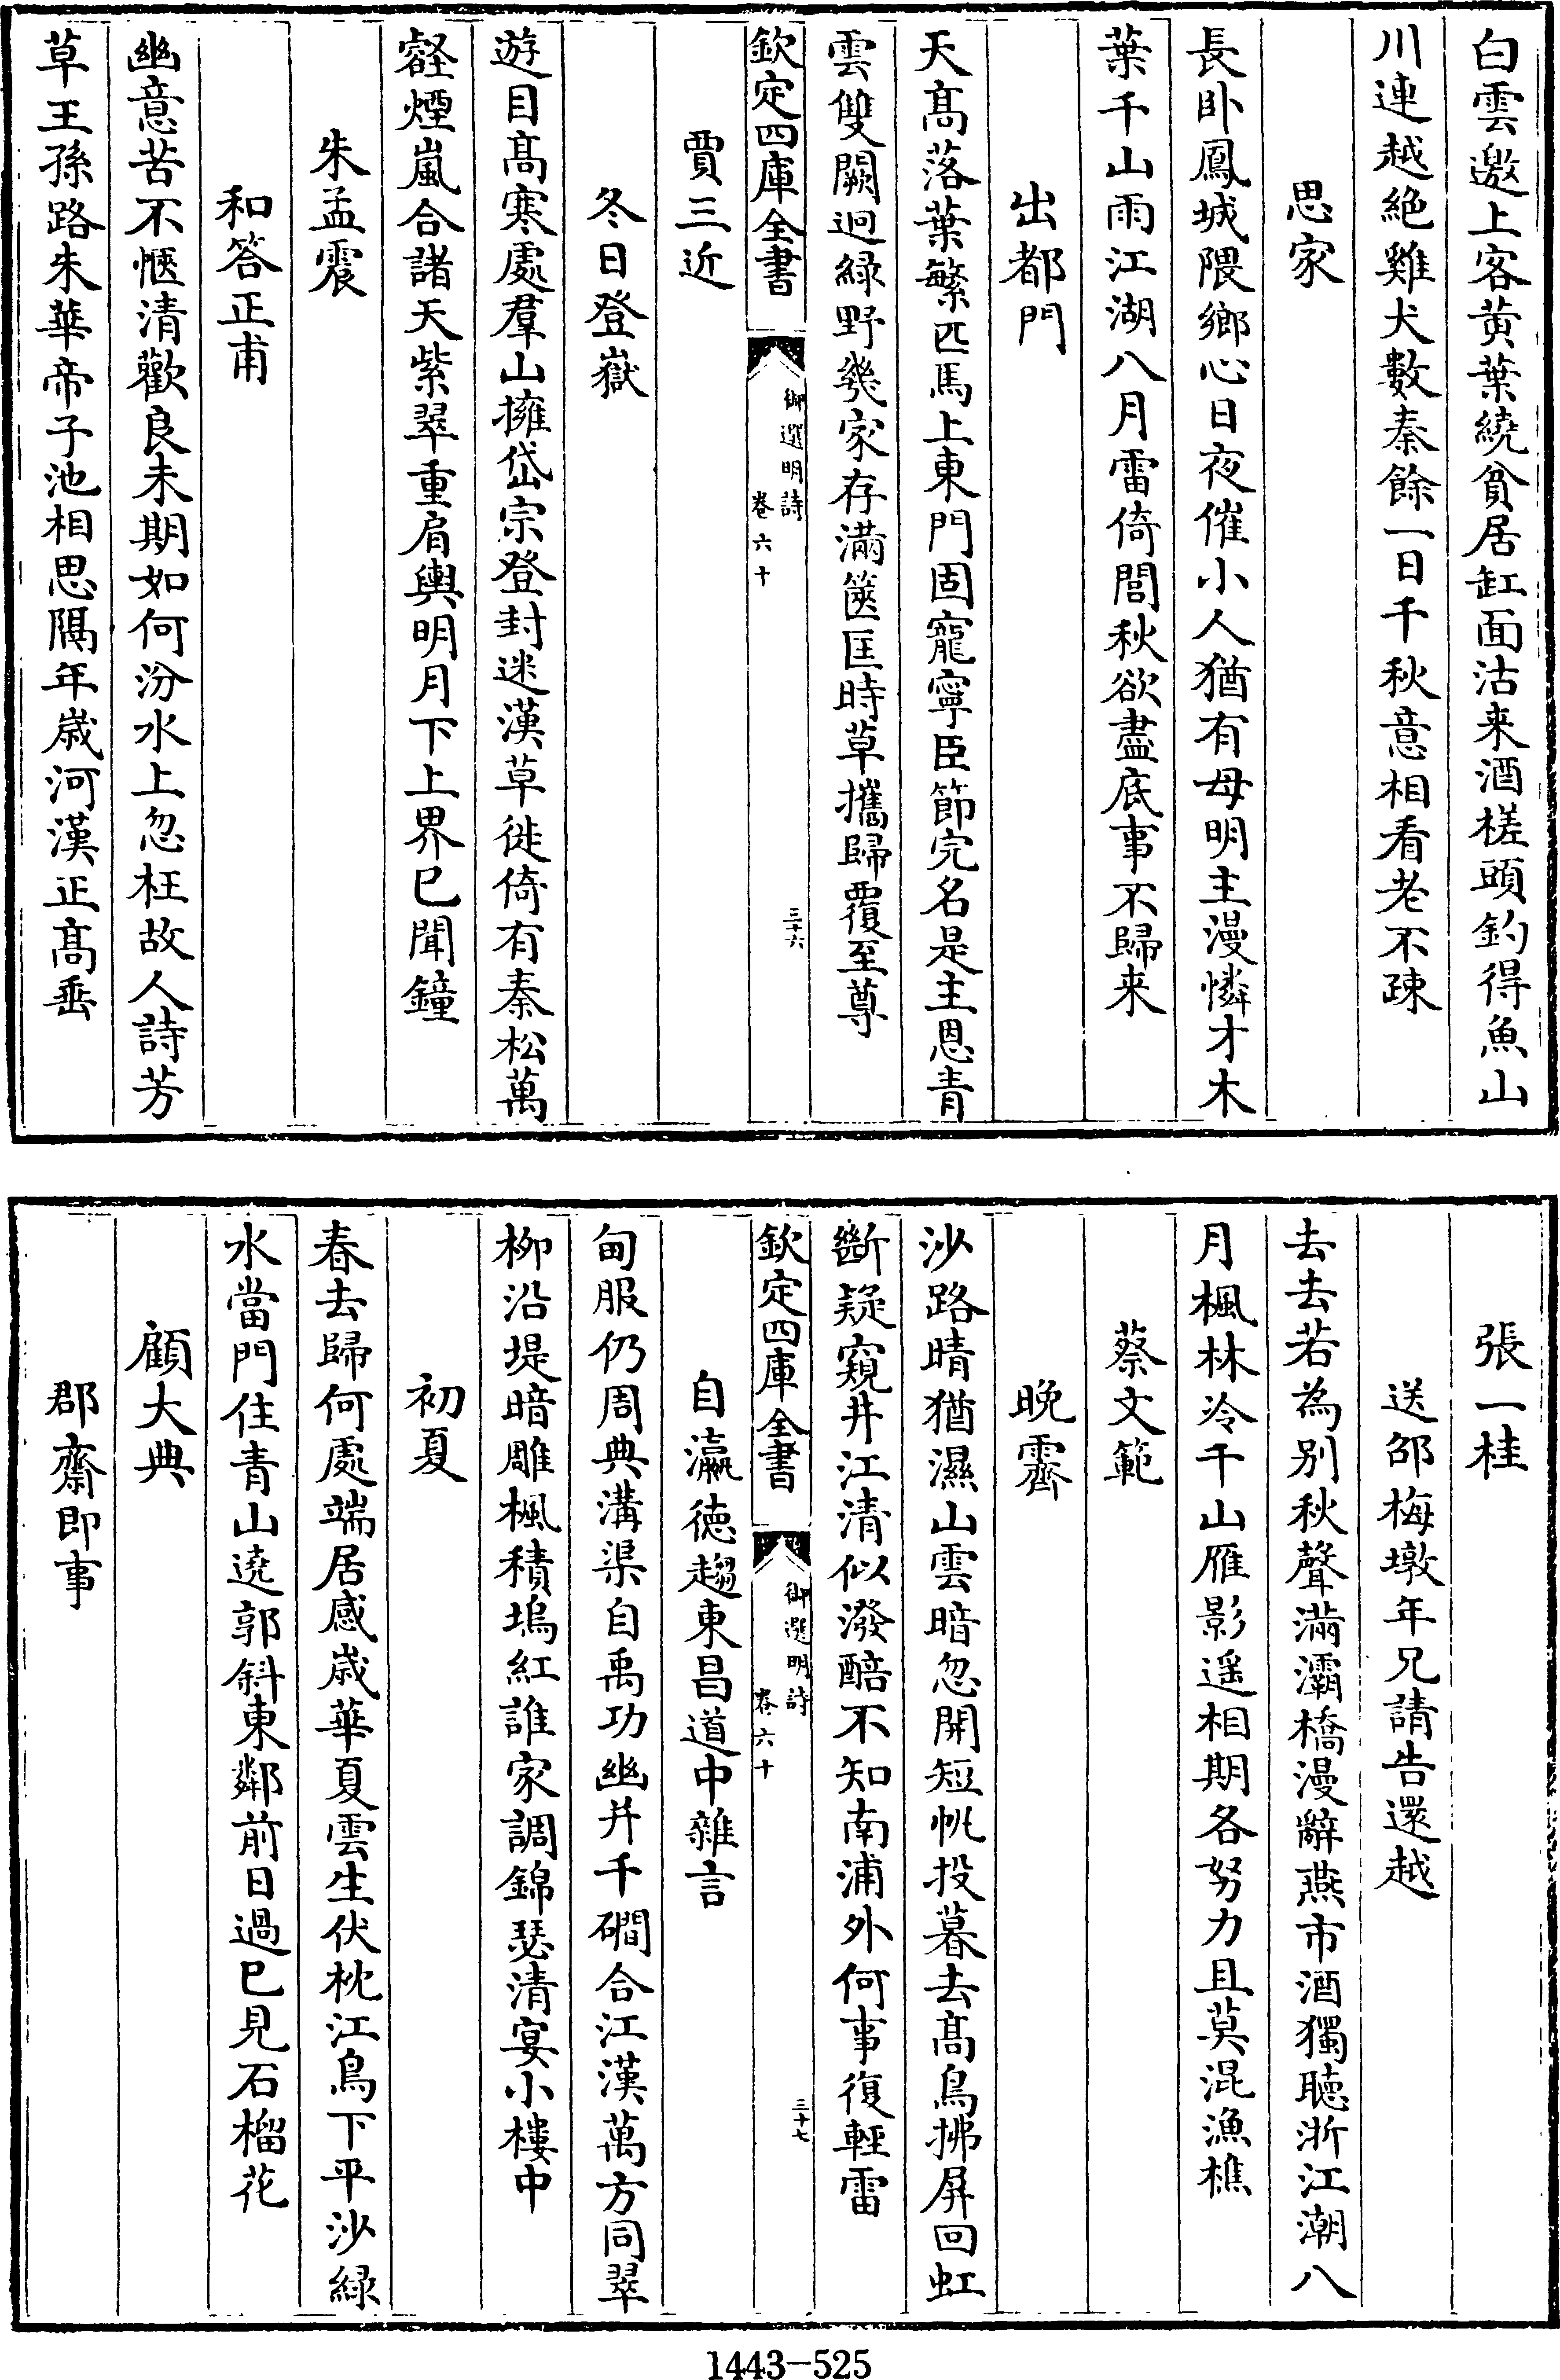 白雲邀上客黄葉繞貧居缸面沽来酒槎頭釣得魚山
川連越絶雞犬數秦餘一日千秋意相看老不疎
思家
長卧鳳城隈鄉心日夜催小人猶有母明主漫憐才木
葉千山雨江湖八月雷倚閭秋欲盡底事不歸来
出都門
天髙落葉繁匹馬上東門固寵寧臣節完名是主恩青
雲雙闕迥緑野幾家存滿篋匡時草攜歸覆至尊
欽定四庫全書
御選明詩
卷六十
三十六
賈三近
冬日登嶽
遊目髙寒處羣山擁岱宗登封迷漢草徙倚有秦松萬
壑煙嵐合諸天紫翠重肩輿明月下上界已聞鐘
朱孟震
和答正甫
幽意苦不愜清歡良未期如何汾水上忽枉故人詩芳
草王孫路朱華帝子池相思隔年歲河漢正髙垂
張一桂
送邵梅墩年兄請告還越
去去若為别秋聲滿灞橋漫辭燕市酒獨聽浙江潮八
月楓林冷千山雁影遥相期各努力且莫混漁樵
蔡文範
晚霽
沙路晴猶濕山雲暗忽開短帆投暮去髙鳥拂屏回虹
斷疑窺井江清似潑醅不知南浦外何事復輕雷
欽定四庫全書
御選明詩
卷六十
三十七
自瀛徳趨東昌道中雜言
甸服仍周典溝渠自禹功幽并千磵合江漢萬方同翠
柳沿堤暗雕楓積塢紅誰家調錦瑟清宴小樓中
初夏
春去歸何處端居感歲華夏雲生伏枕江鳥下平沙緑
水當門住青山遶郭斜東鄰前日過已見石榴花
顧大典
郡齋即事
1443-525